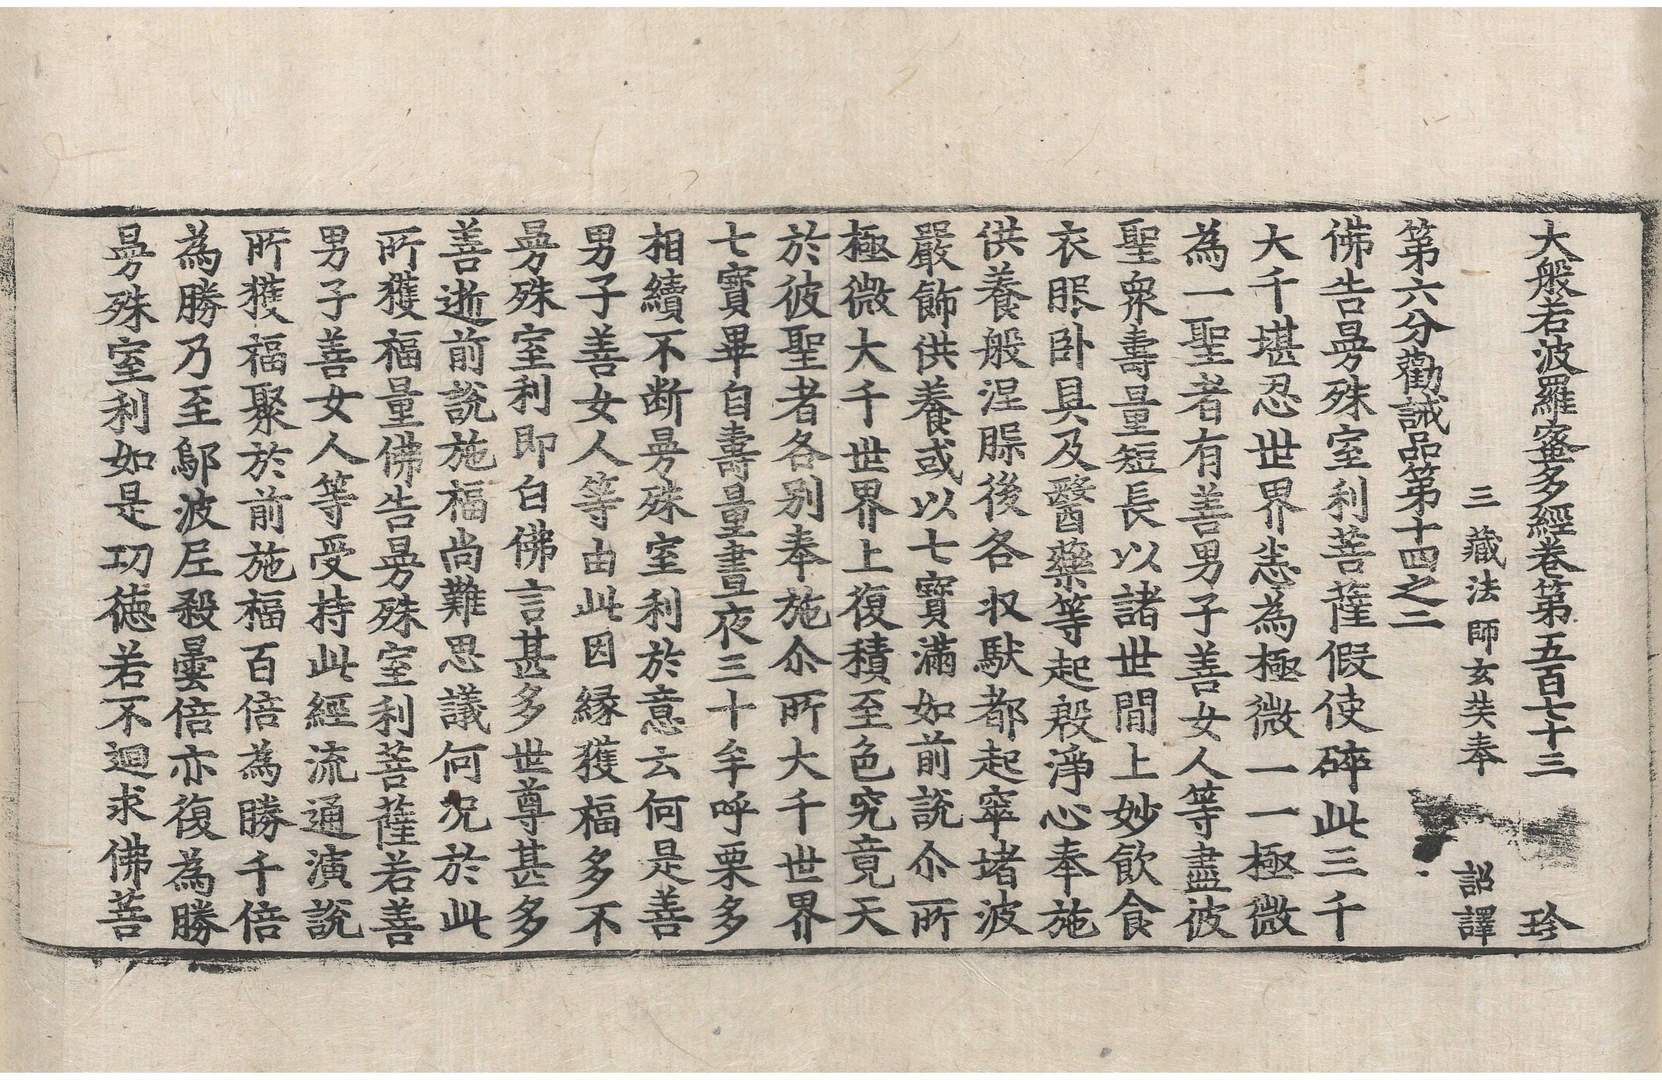 大般若波羅蜜多經卷第五百七十三 珍
三藏法師玄奘奉 詔譯
第六分勸誡品第十四之二
佛告曼殊室利菩薩假使碎此三千
大千堪忍世界悉為極微一一極微
為一聖者有善男子善女人等盡彼
聖衆壽量短長以諸世間上妙飲食
衣服卧具及醫藥等起殷淨心奉施
供養般涅脤後各収䭾都起窣堵波
嚴飾供養或以七寶滿如前說尒所
極微大千世界上復積至色究竟天
於彼聖者各別奉施尒所大千世界
七寶畢自壽量晝夜三十牟呼栗多
相續不断曼殊室利於意云何是善
男子善女人等由此因縁獲福多不
曼殊室利即白佛言甚多世尊甚多
善逝前說施福尚難思議何况於此
所獲福量佛告曼殊室利菩薩若善
男子善女人等受持此經流通演說
所獲福聚於前施福百倍為勝千倍
為勝乃至鄔波尼殺曇倍亦復為勝
曼殊室利如是功徳若不迴求佛菩